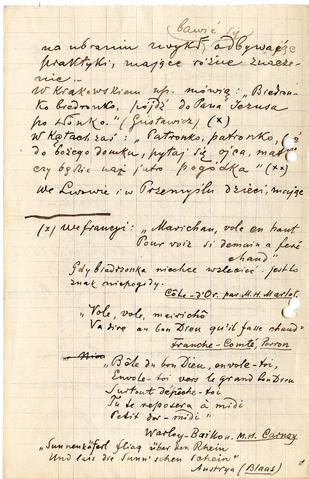 bawić się
na ubraniu zwykł odbywać
praktyki, mające różne znacze-
nie.
W Krakowskiem np. mówią: „Biedron-
ko biedronko, pójdź do Pana Jezusa
po słonko." (Gustawicz) (x)
W Kętach zaś: „Patronko, patronko,
do bożego domku, pytaj się ojca, mat
czy będzie nąż jutro pogódka" (xx)
We Lwowie i w Przemyślu dzieci, mając
(x) We francyi: „Marichau, vole en haut
Pour voir si demain a feré
chaud"
Gdy biedronka niechce wzlecieć jest to
znak niepogody.
Côte-d'Or. par M.H. Marlot.
„Vole, vole, mairichô
Va dire au bon Dieu qu'il fasse chaud"
Franche-Comté, Perron
„Bête du bon Dieu, envole-toi,
Envole-toi vers le grand bon Dieu
Surtout dépêche-toi
Tu te reposera à midi
Petit dor-midi"
Warloy-Baillon. M.H. Carnoy
„Sunnenkäferl flieg über den Rhein
Und lass die Sunn' schen schein"
Austrya (Blaas)